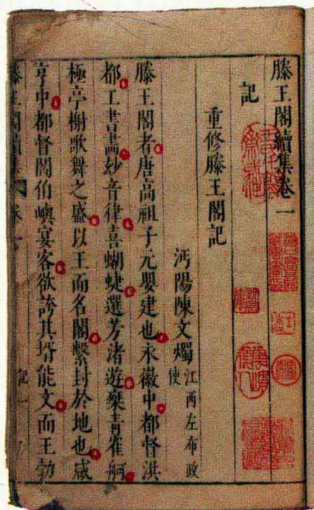 滕王閣續集卷一
記
重修滕王閣記
沔陽陳文燭江西左布政使
滕王閣者唐高祖子元嬰建也永徽中都督洪
都工書畵妙音律喜蝴蝶選芳渚遊乗青雀舸
極亭榭歌舞之盛以王而名閣繫封於地也咸
亨中都督閻伯嶼宴客欲誇其壻能文而王勃